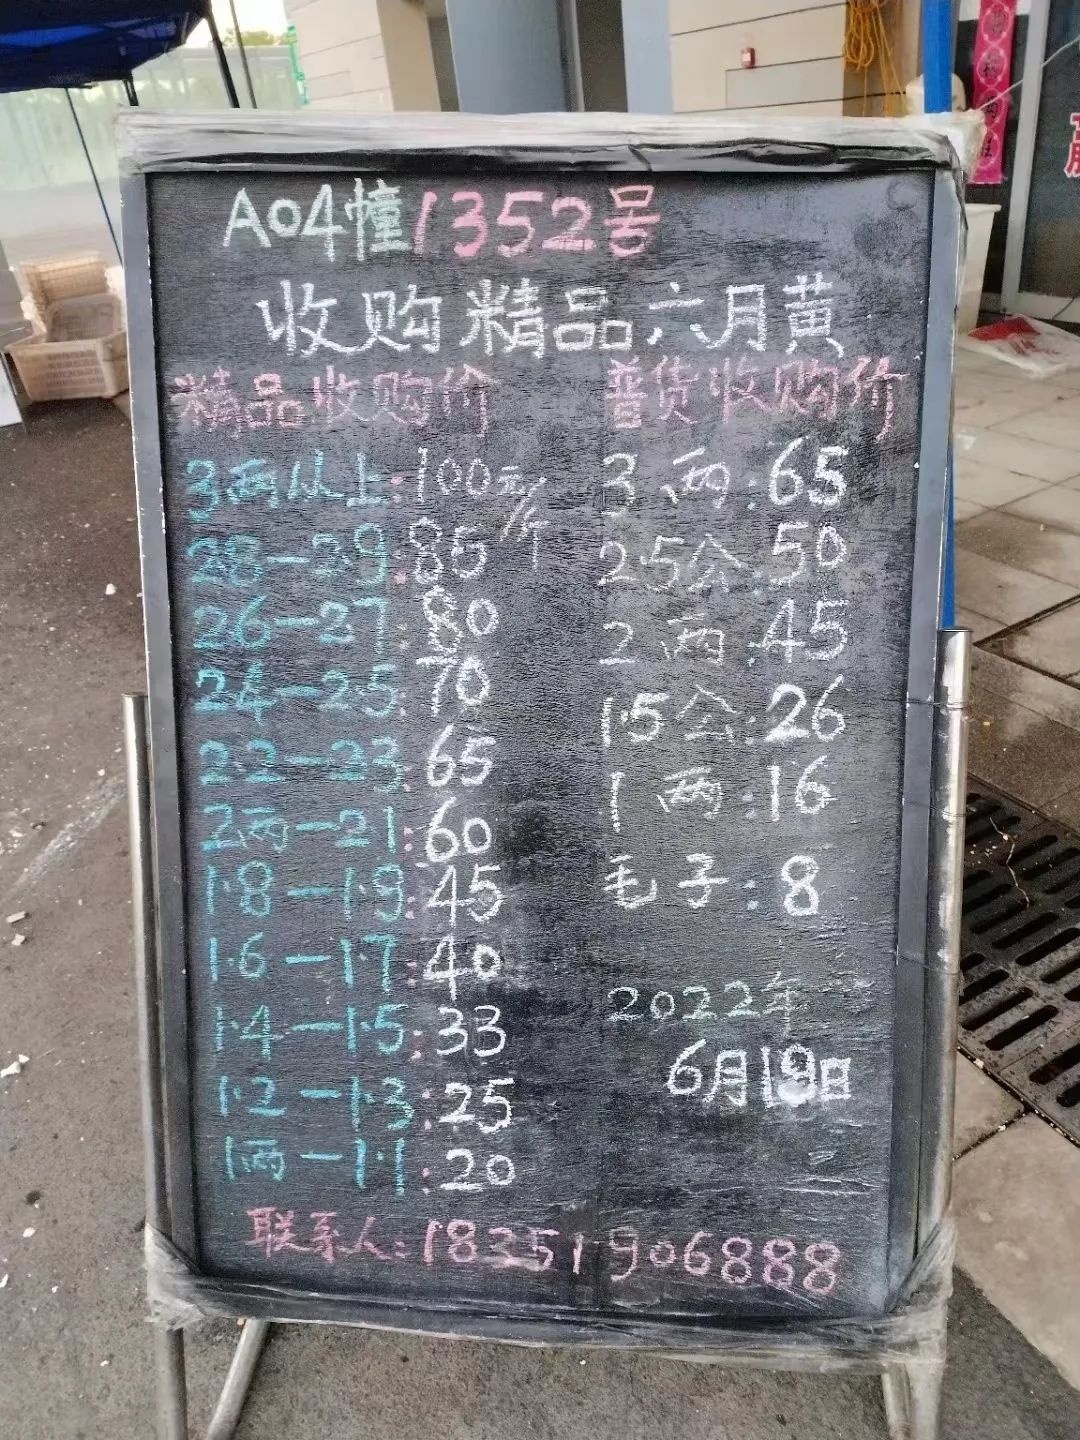 A04幢1352号
收购精品六月黄
精品收购价
3两从上:100元/斤
28-29:85
26-27:80
24-25:70
22-23:65
2两-21:60
1.8-1.9:45
1.6-1.7:40
1.4-1.5:33
1.2-1.3:25
1两-1.1:20
普货收购价
3两:65
25公:50
2两:45
1.5公:26
1两:16
毛子:8
2022年
6月19日
联系人:18351906888